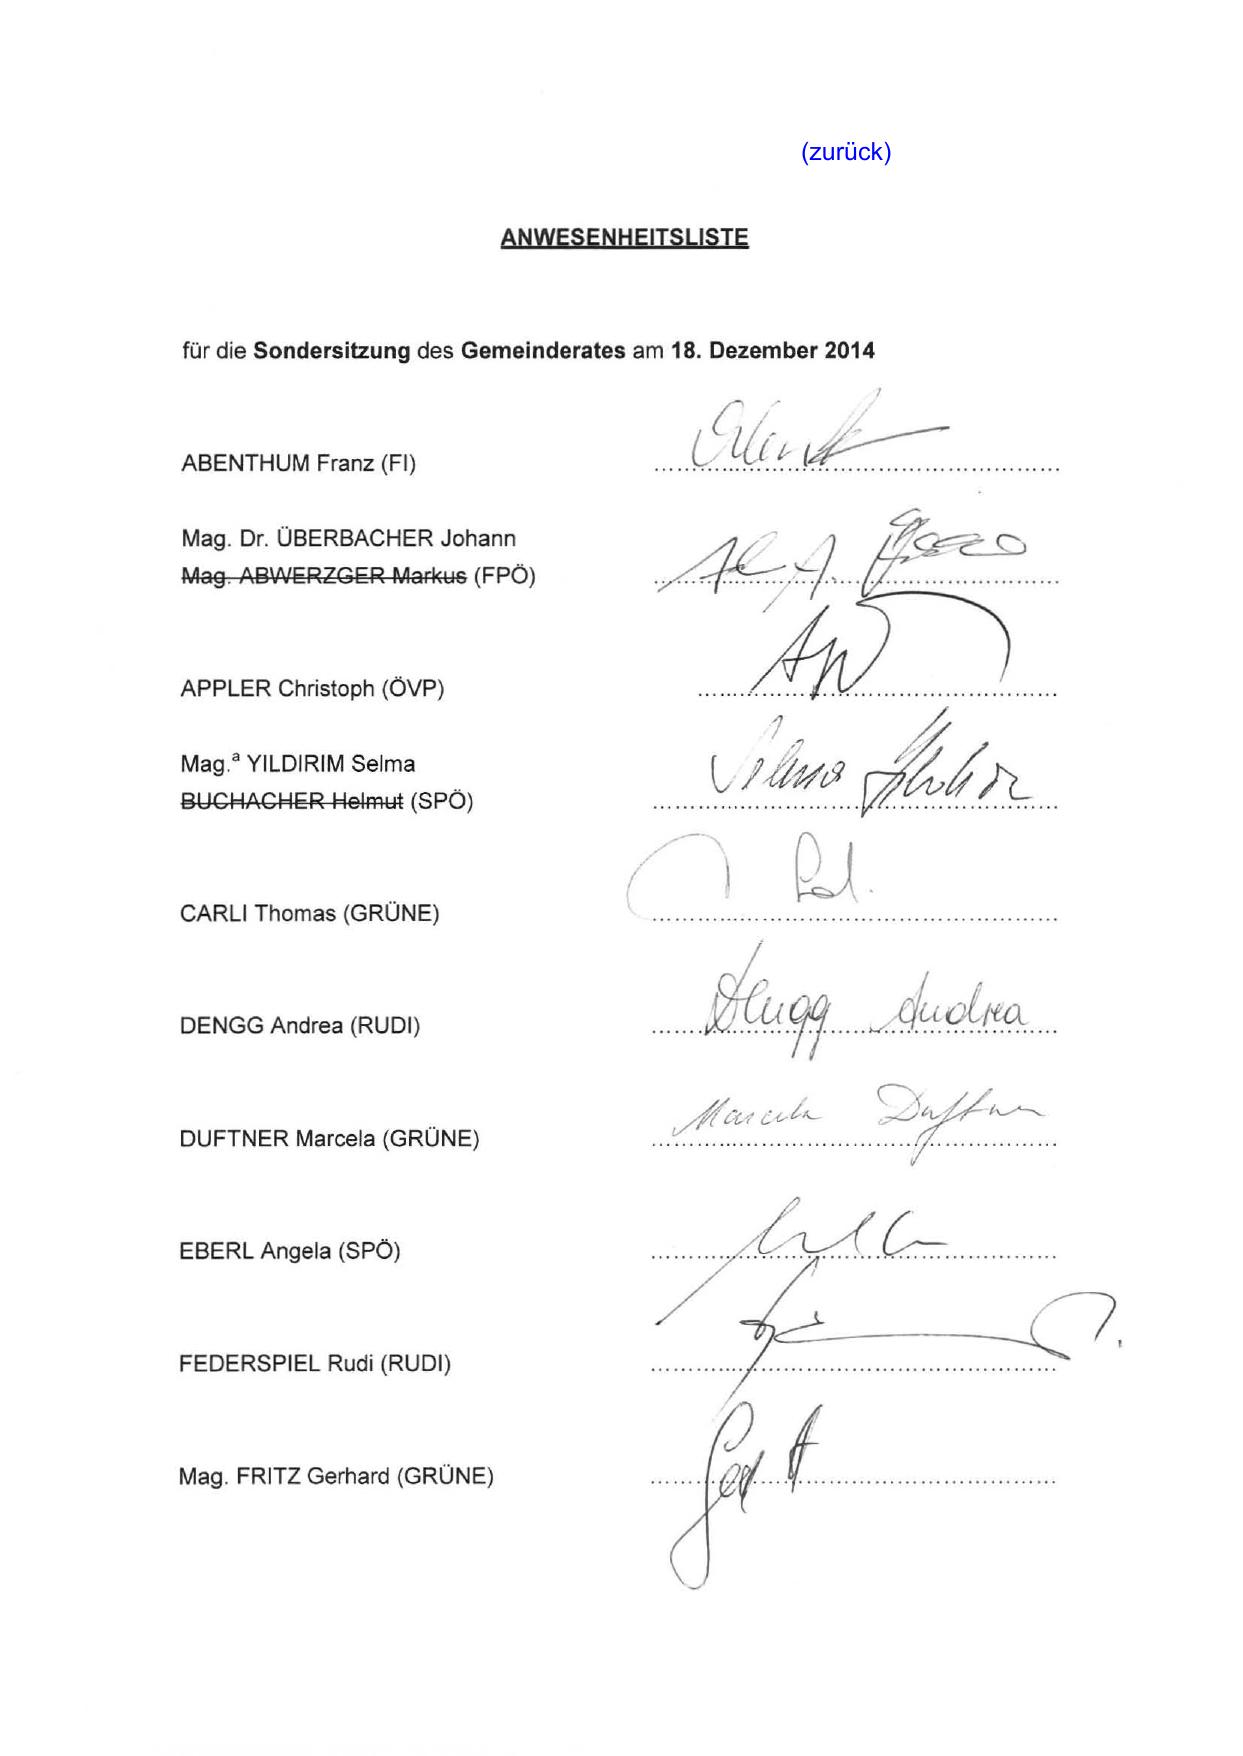 (zurück)
ANWESENHEITSLISTE
für die Sondersitzung des Gemeinderates am 18. Dezember 2014
ABENTHUM Franz (FI)
Mag. Dr. ÜBERBACHER Johann
Mag. ABWERZGER Markus (FPÖ)
APPLER Christoph (ÖVP)
Mag.ª YILDIRIM Selma
Selma
BUCHACHER Helmut (SPÖ)
CARLI Thomas (GRÜNE)
DENGG Andrea (RUDI) Dengg Andrea
DUFTNER Marcela (GRÜNE) Marcela Duftner
EBERL Angela (SPÖ)
FEDERSPIEL Rudi (RUDI)
Mag. FRITZ Gerhard (GRÜNE)